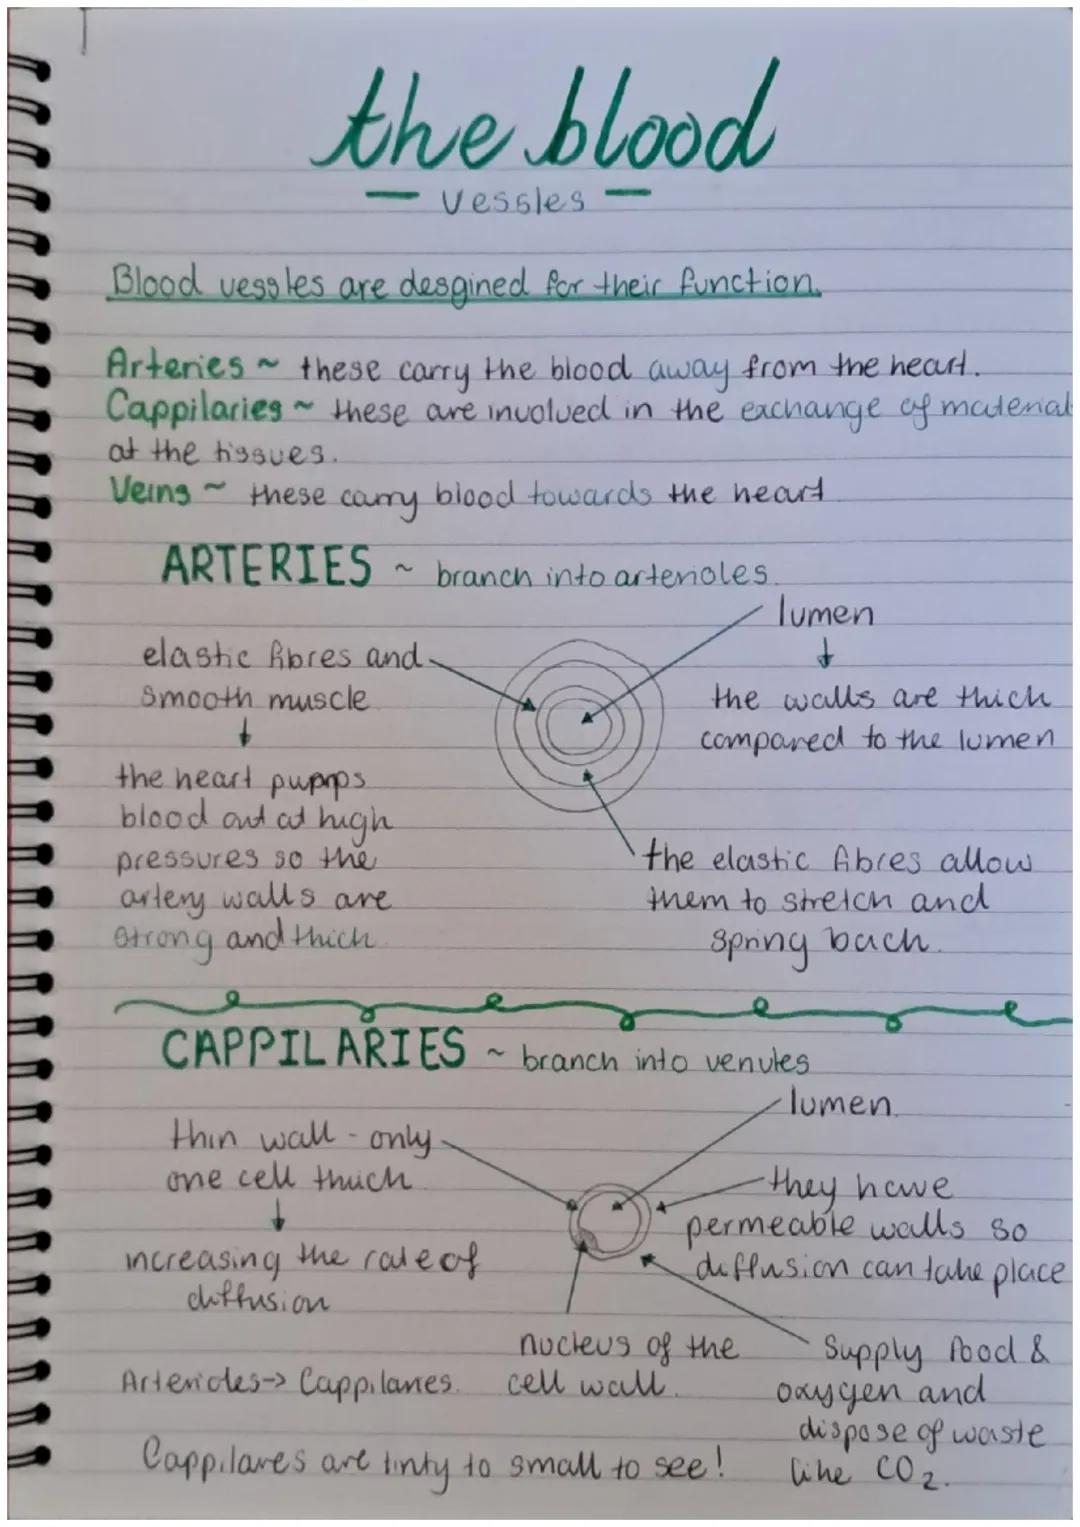 the blood
— vessles —
Blood vessles are desgined for their function.
Arteries ~ these carry the blood away from the heart.
Cappilaries ~ these are involved in the exchange of material
at the tissues.
Veins ~ these carry blood towards the heart
ARTERIES ~ branch into arterioles.
lumen
↓
the walls are thick
compared to the lumen
elastic fibres and
smooth muscle
↓
the heart pupmps
blood out at high
pressures so the
artery walls are
strong and thick
the elastic fibres allow
them to stretch and
spring back.
CAPPILARIES ~ branch into venules
lumen.
thin wall - only
one cell thick
↓
increasing the rate of
diffusion
they have
permeable walls so
diffusion can take place
nucleus of the
cell wall.
Supply food &
oxygen and
dispose of waste
like CO2.
Arterioles-> Cappilaries.
Cappilares are tinty to small to see!